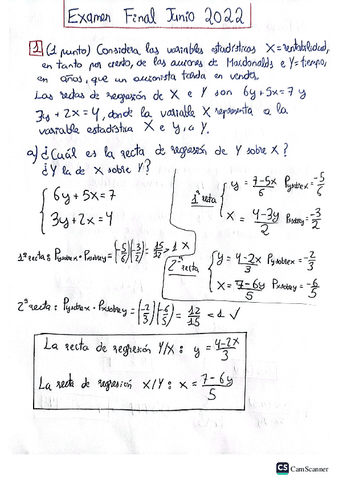 Examen Final Junio 2022
1 (1 punto) Considera las variables estadísticas X = rentabilidad,
en tanto por ciento, de las acciones de Macdonalds e Y = tiempo,
en años, que un accionista tarda en vender.
Las rectas de regresión de X e Y son 6y + 5x = 7 y
3y + 2x = 4, donde la variable X representa a la
variable estadística X e y, a Y.
a) ¿Cuál es la recta de regresión de Y sobre X?
¿Y la de X sobre Y?
{ 6y + 5x = 7
3y + 2x = 4
1ª recta { y = 7-5x/6 βy sobre x = -5/6
x = 4-3y/2 βx sobre y = -3/2
1ª recta: βy sobre x · βx sobre y = (-5/6)(-3/2) = 15/12 > 1 X
2ª recta { y = 4-2x/3 βy sobre x = -2/3
x = 7-6y/5 βx sobre y = -6/5
2ª recta: βy sobre x · βx sobre y = (-2/3)(-6/5) = 12/15 = <1 ✓
La recta de regresión Y/X: y = 4-2x/3
La recta de regresión X/Y: x = 7-6y/5
CS CamScanner